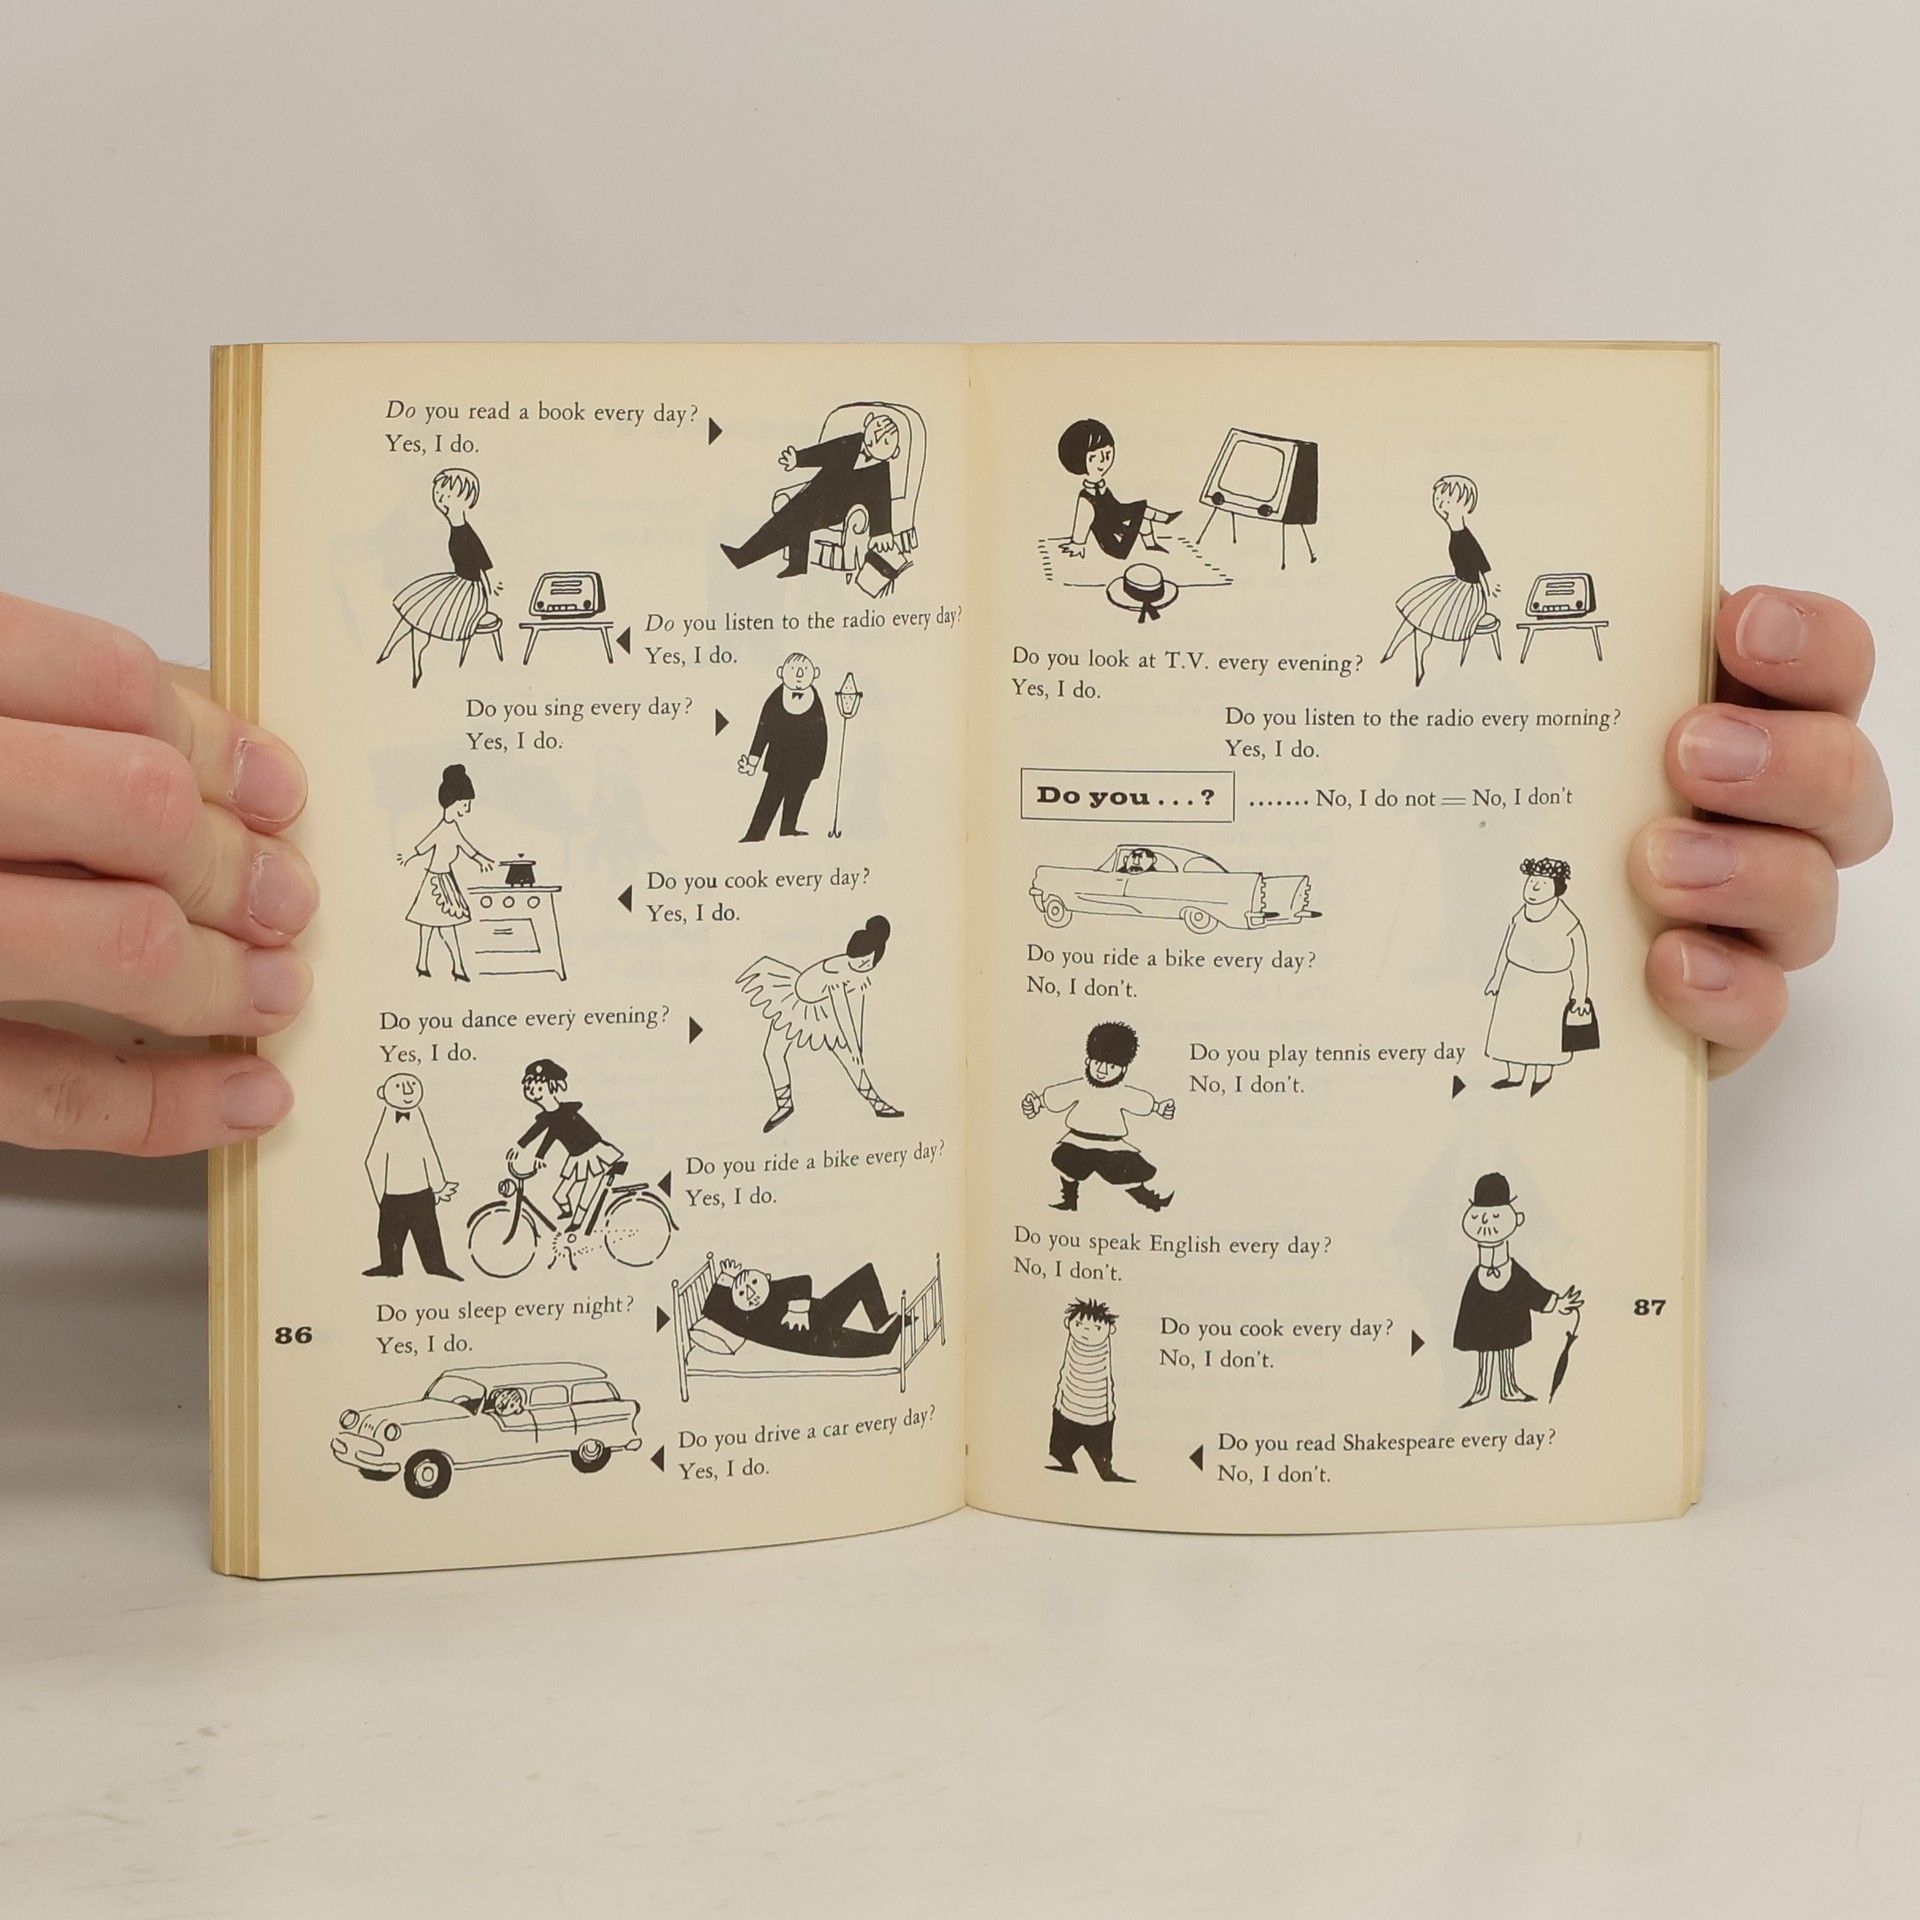 Do you read a book every day?
Yes, I do.
Do you listen to the radio every day?
Yes, I do.
Do you sing every day?
Yes, I do.
Do you cook every day?
Yes, I do.
Do you dance every evening?
Yes, I do.
Do you ride a bike every day?
Yes, I do.
Do you sleep every night?
Yes, I do.
86
Do you drive a car every day?
Yes, I do.
Do you look at T.V. every evening?
Yes, I do.
Do you listen to the radio every morning?
Yes, I do.
Do you...? ....... No, I do not = No, I don't
Do you ride a bike every day?
No, I don't.
Do you play tennis every day
No, I don't.
Do you speak English every day?
No, I don't.
87
Do you cook every day?
No, I don't.
Do you read Shakespeare every day?
No, I don't.